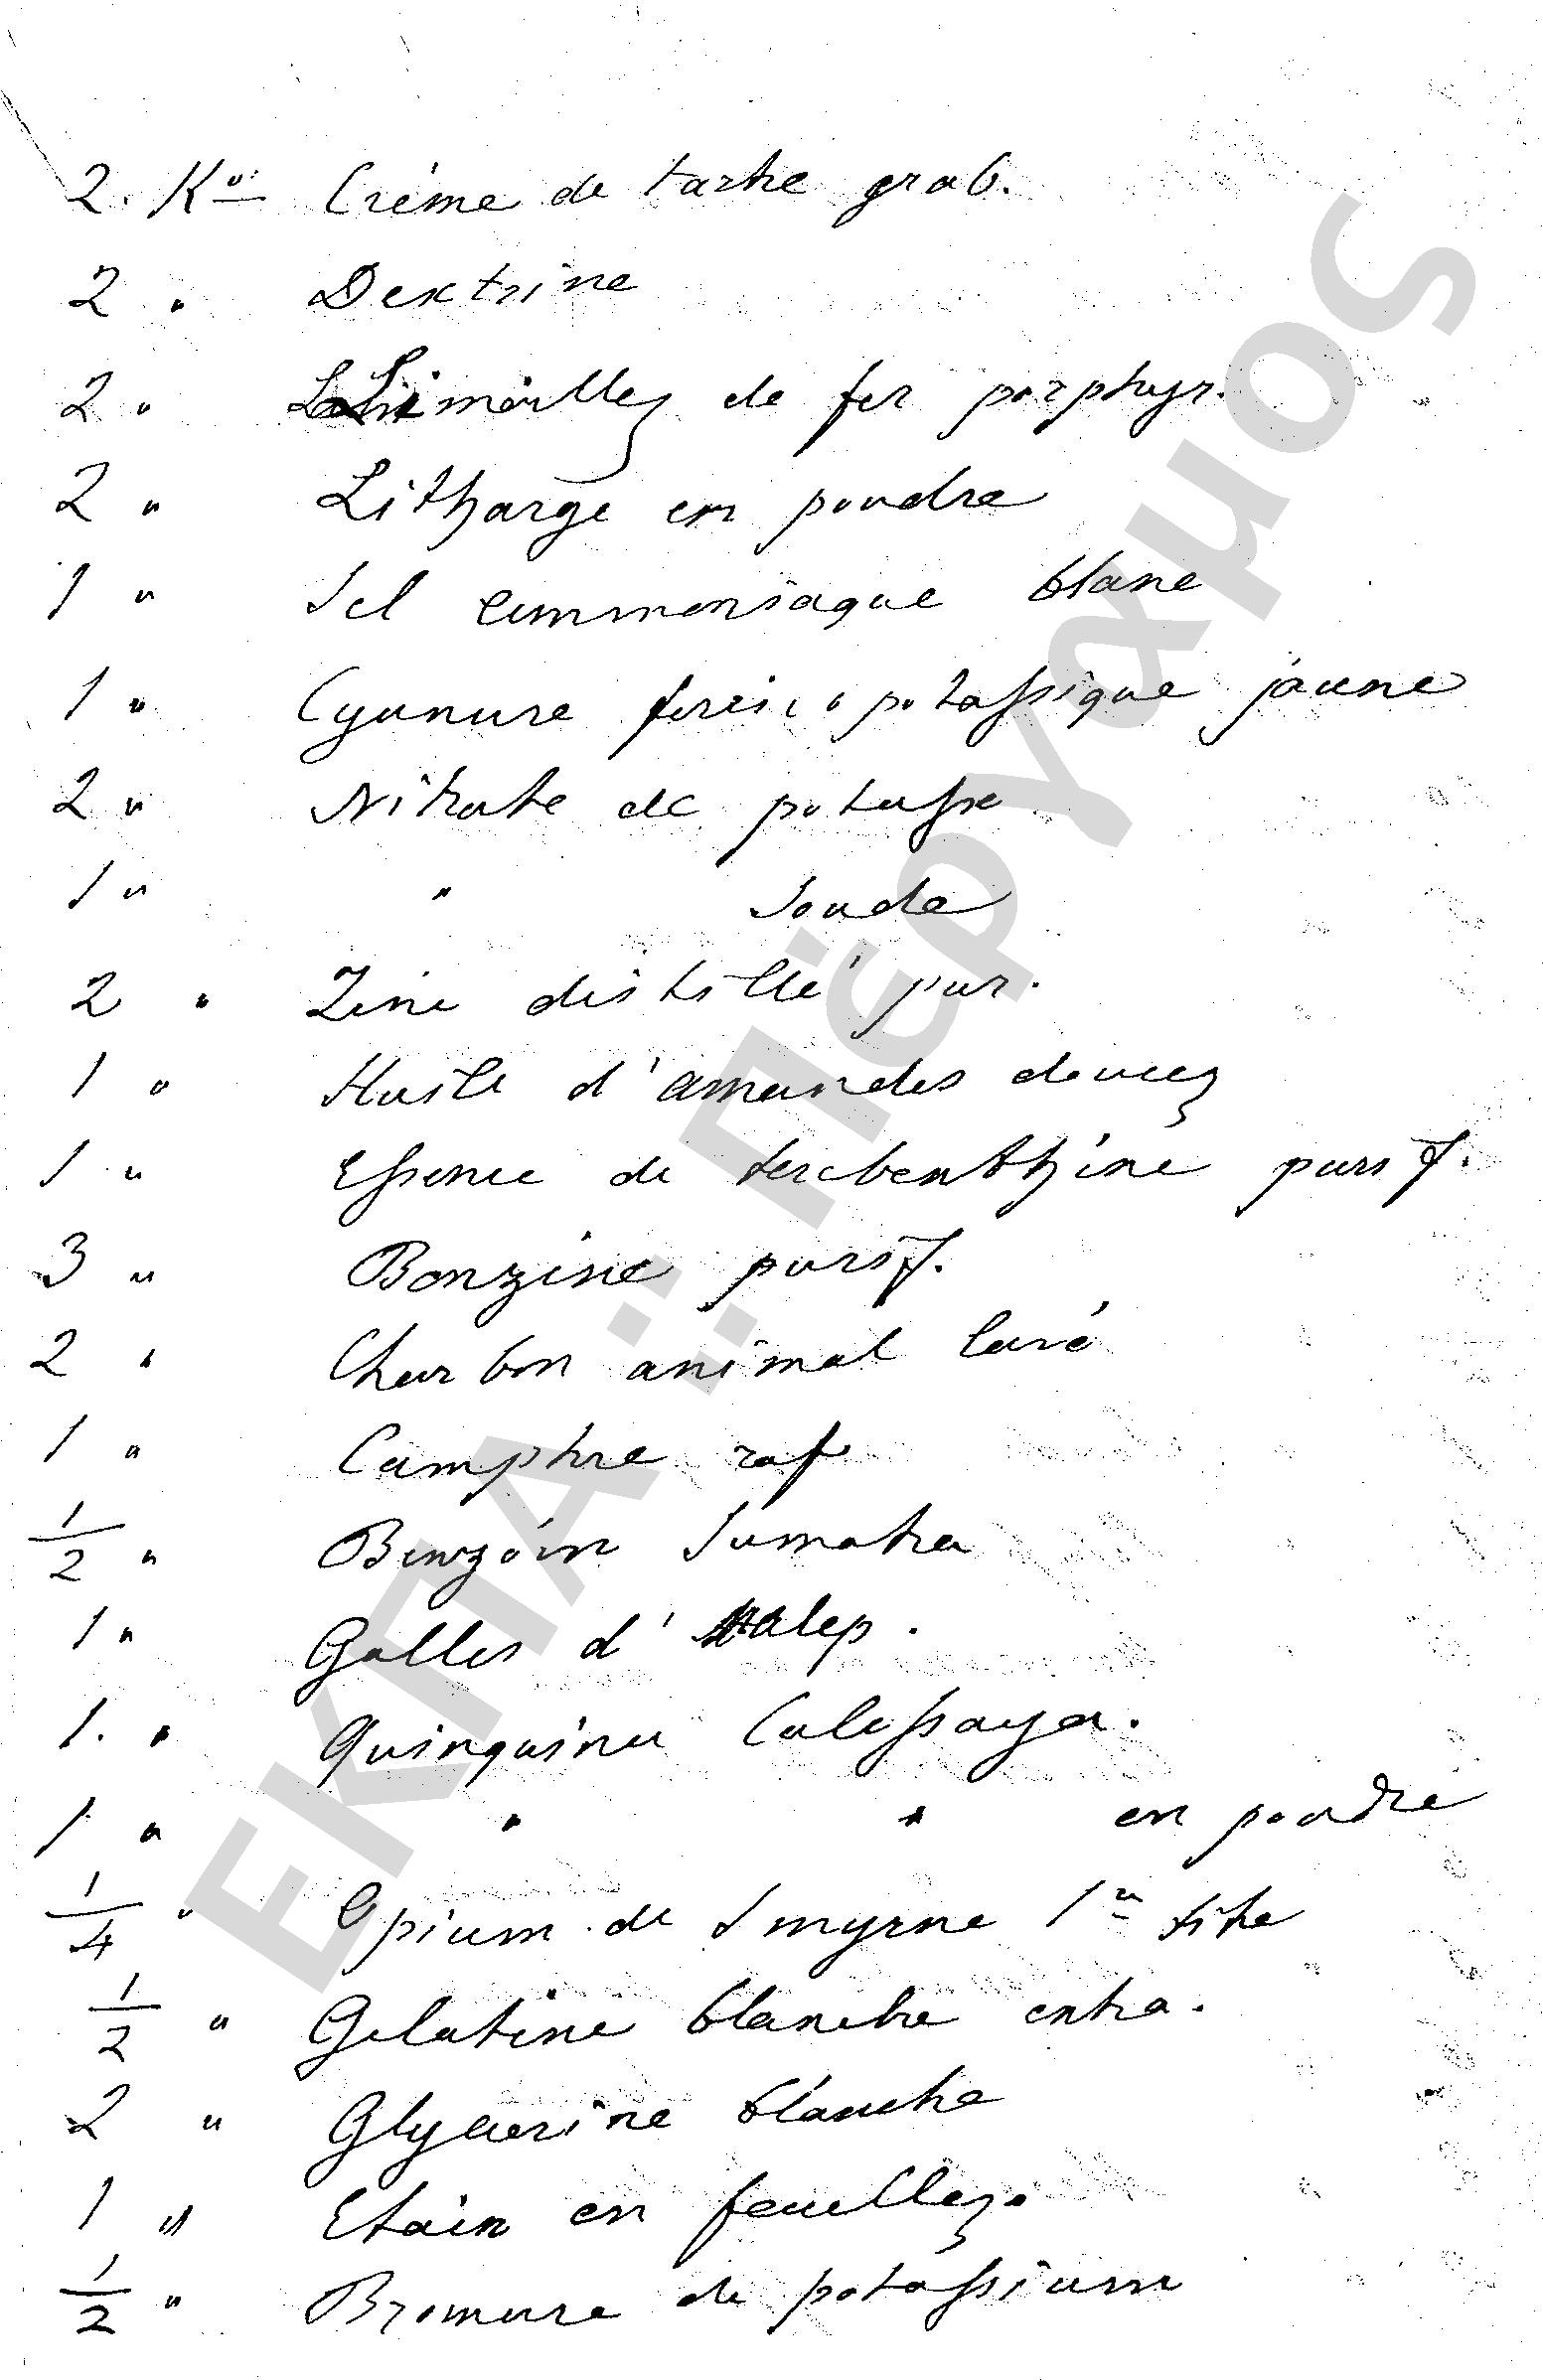 2. Ko. Crème de tartre grab.
2 " Dextrine
2 " Limailles de fer porphyr.
2 " Litharge en poudre
1 " Sel ammoniaque blanc
1 " Cyanure ferrico potassique jaune
2 " Nitrate de potasse
1 " " Soude
2 " Zinc distillé pur.
1 " Huile d'amandes douces
1 " Essence de terebenthine purif.
3 " Benzine purif.
2 " Charbon animal lavé
1 " Camphre raf
1/2 " Benzoin Sumatra
1 " Galles d'Alep.
1. " Quinquina Calissaya.
1 " " " en poudre
1/4 " Opium de Smyrne 1re titre
1/2 " Gelatine blanche extra.
2 " Glycerine blanche
1 " Etain en feuilles.
1/2 " Bromure de potassium
ΕΚΠΑ :: Πέργαμος